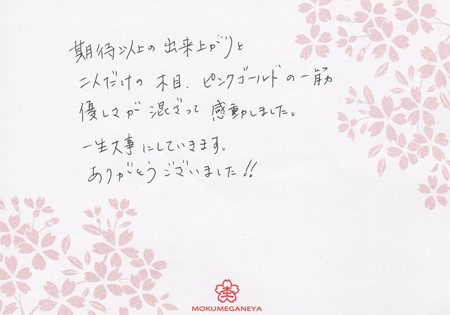 期待以上の出来上がりと
二人だけの木目、ピンクゴールドの一筋
優しさが混ざって感動しました。
一生大事にしていきます。
ありがとうございました!!
MOKUMEGANEYA